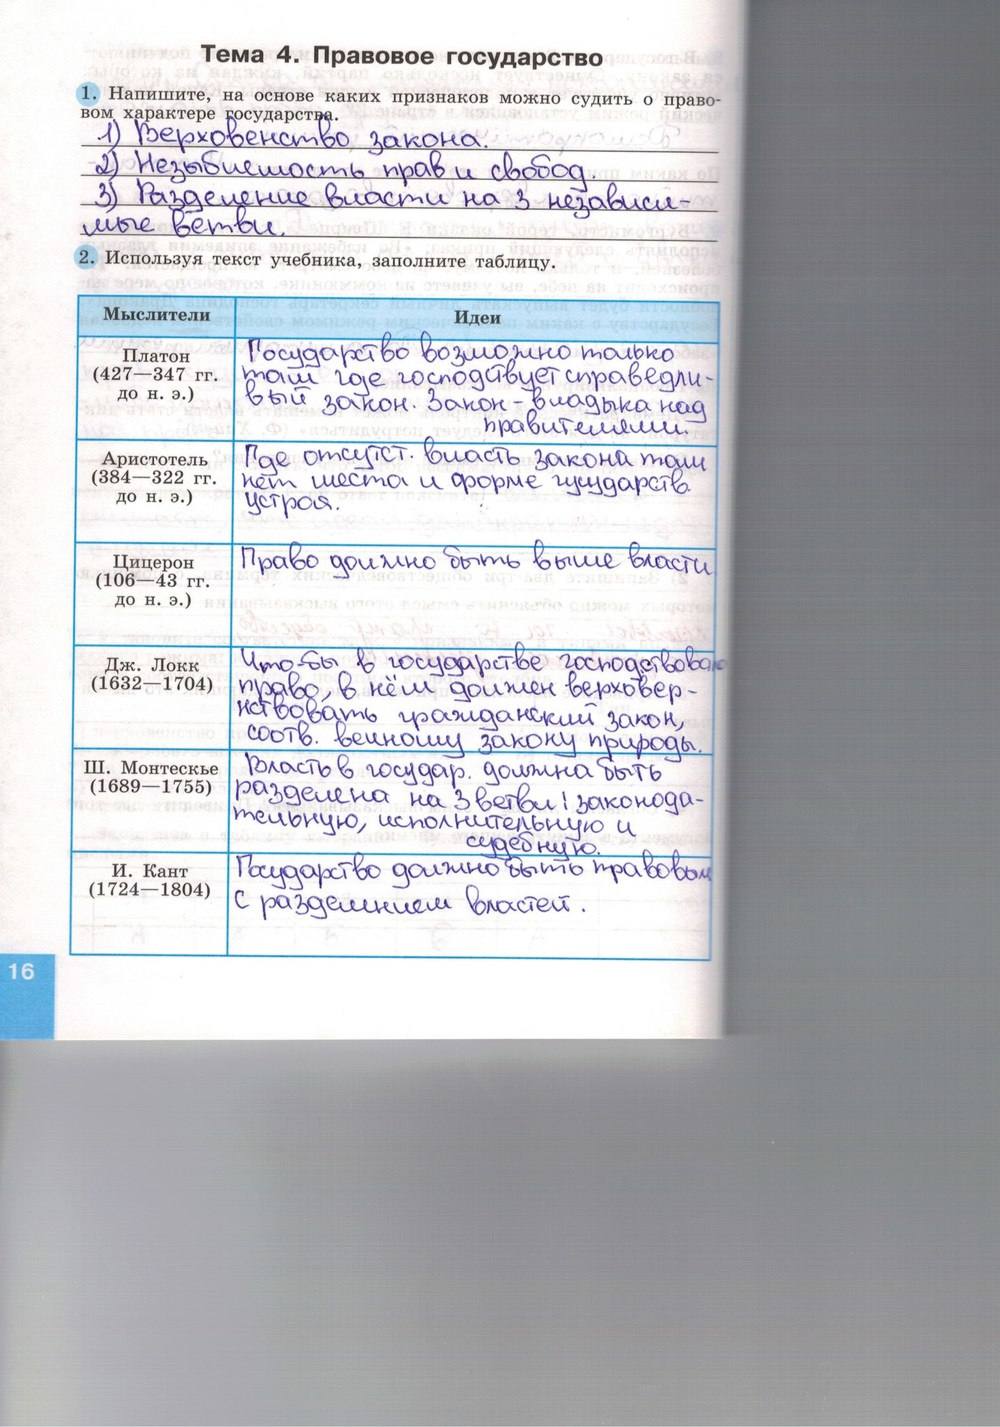 Тема 4. Правовое государство
1. Напишите, на основе каких признаков можно судить о право-
вом характере государства.
1) Верховенство закона.
2) Незыблемость прав и свобод.
3) Разделение власти на 3 независи-
мые ветви.
2. Используя текст учебника, заполните таблицу.
Мыслители
Идеи
Платон
(427—347 гг.
до н. э.)
Государство возможно только
там где господствует справедли-
вый закон. Закон - владыка над
правителями.
Аристотель
(384—322 гг.
до н. э.)
Где отсутст. власть закона там
нет места и форме гусударств.
устроя.
Цицерон
(106—43 гг.
до н. э.)
Право должно быть выше власти
Дж. Локк
(1632—1704)
Что-бы в государстве господствовало
право, в нём должен верховер-
нствовать гражданский закон,
соотв. вечному закону природы.
Ш. Монтескье
(1689—1755)
Власть в государ. должна быть
разделена на 3 ветви: законода-
тельную, исполнительную и
судебную.
И. Кант
(1724—1804)
Государство должно быть правовым
с разделением властей.
16